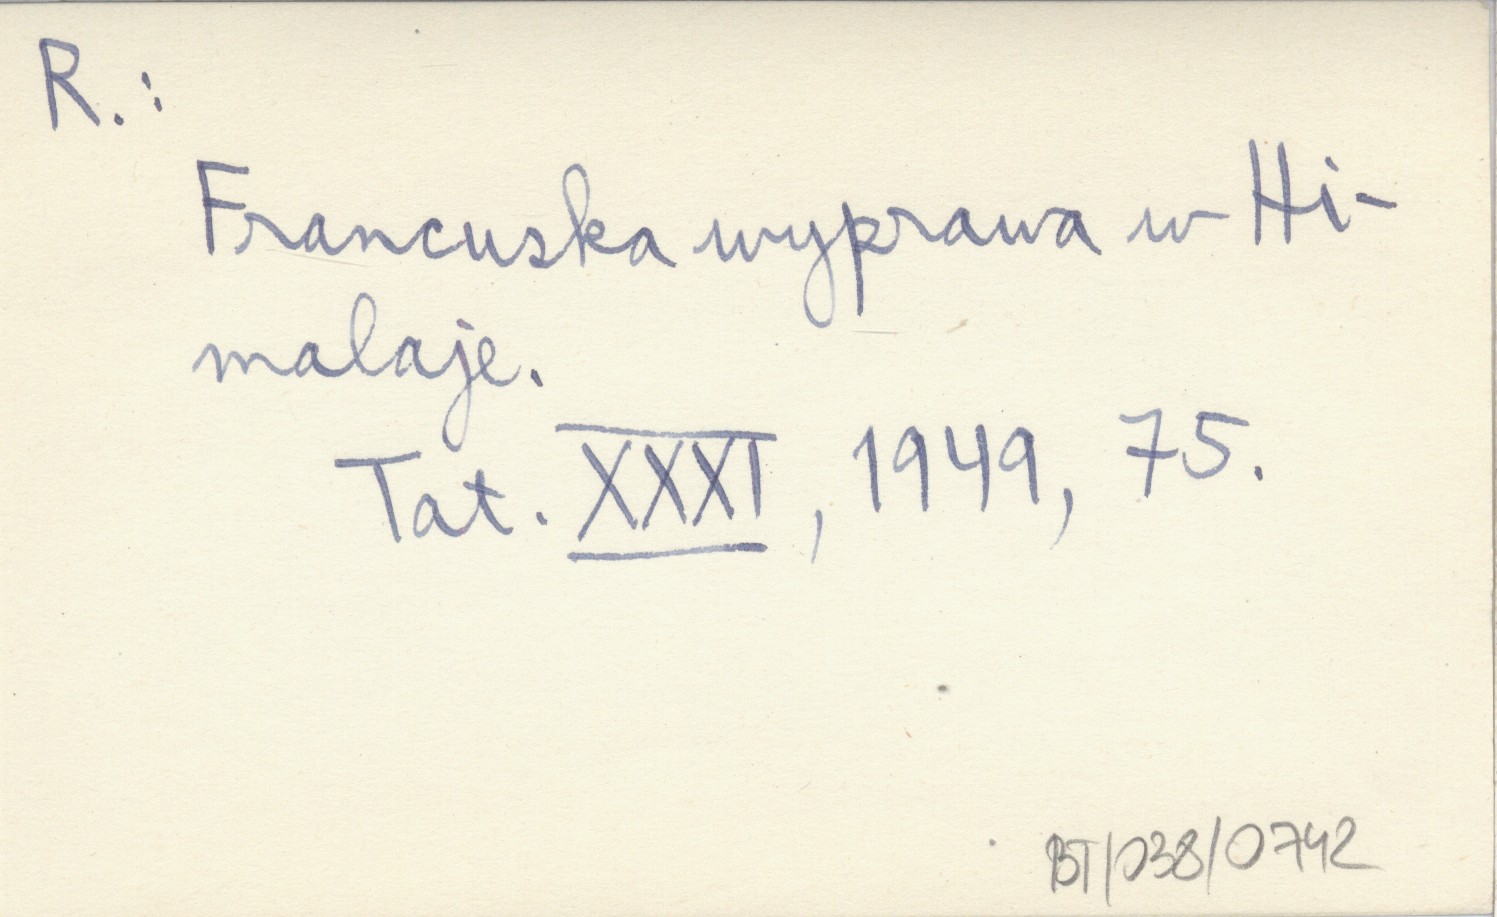 R.:
Francuska wyprawa w Hi-
malaje.
Tat. XXXI, 1949, 75.
BT/038/0742